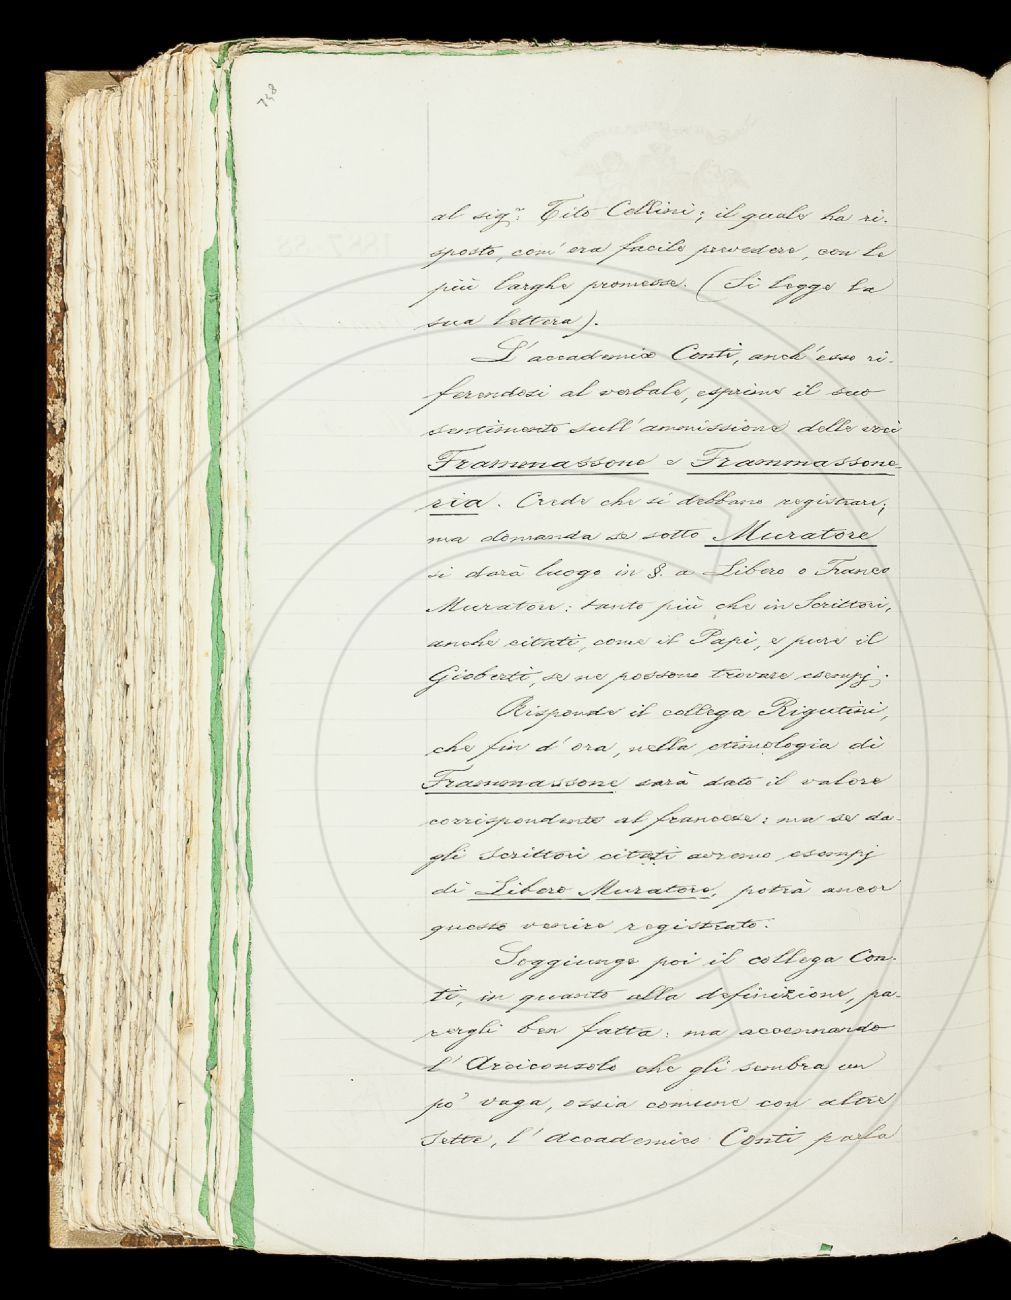 738
al sig.r Tito Cellini; il quale ha ri-
sposto, com'era facile prevedere, con le
più larghe promesse. (Si legge la
sua lettera).
L'accademico Conti, anch'esso ri-
ferendosi al verbale, esprime il suo
sentimento sull'ammissione delle voci
Frammassone e Frammassone-
ria. Crede che si debbano registrare;
ma domanda se sotto Muratore
si darà luogo in §. a Libero o Franco
Muratore: tanto più che in Scrittori,
anche citati, come il Papi, e pure il
Gioberti, se ne possono trovare esempj.
Risponde il collega Rigutini,
che fin d'ora, nella etimologia di
Frammassone sarà dato il valore
corrispondente al francese: ma se da-
gli Scrittori citati avremo esempj
di Libero Muratore, potrà ancor
questo venire registrato.
Soggiunge poi il collega Con-
ti, in quanto alla definizione, pa-
rergli ben fatta: ma accennando
l'Arciconsolo che gli sembra un
po' vaga, ossia comune con altre
Sette, l'Accademico Conti parla